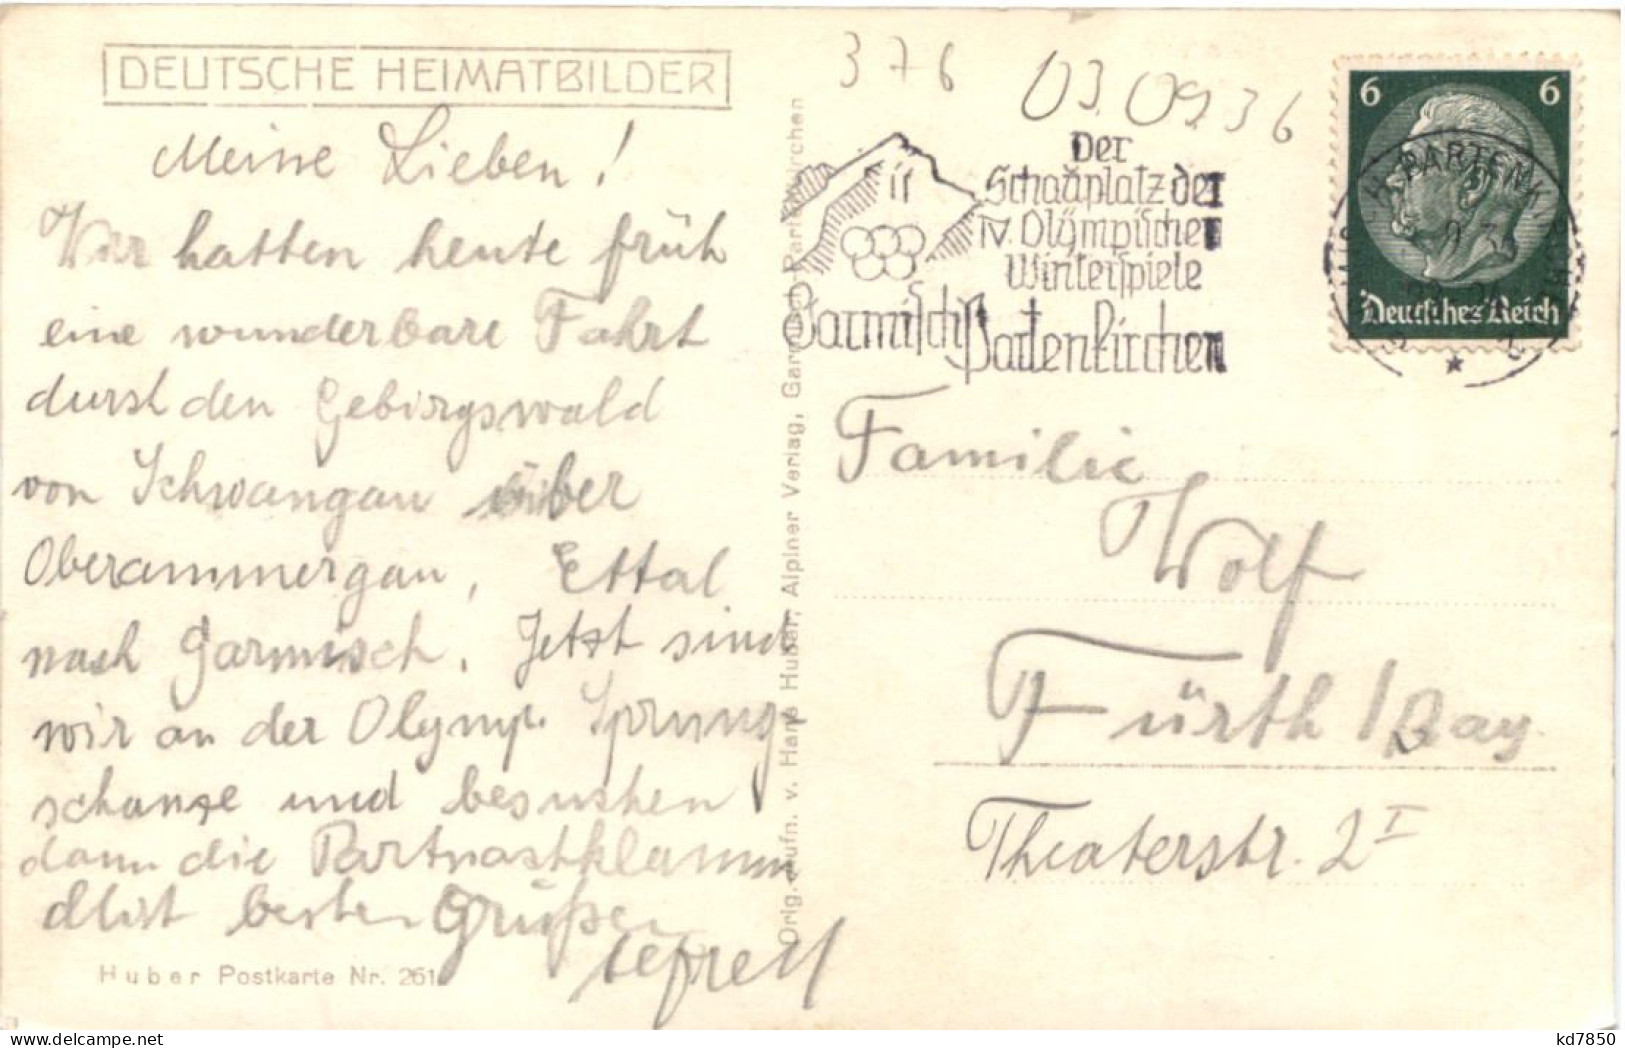 DEUTSCHE HEIMATBILDER
Meine Lieben!
Wir hatten heute früh
eine wunderbare Fahrt
durch den Gebirgswald
von Schwangau über
Oberammergau, Ettal
nach Garmisch. Jetzt sind
wir an der Olymp. Sprung
schanze und besuchen
dann die Partnachklamm
Mit besten Grüßen
Huber Postkarte Nr. 261
Orig. Aufn. v. Hans Huber, Alpiner Verlag, Garmisch Partenkirchen
376
03.09.36
Der
Schauplatz der
IV. Olympischen
Winterspiele
Garmisch Partenkirchen
6 6
Deutsches Reich
Familie
Wolf
Fürth / Bay.
Theaterstr. 2 I
kd7850